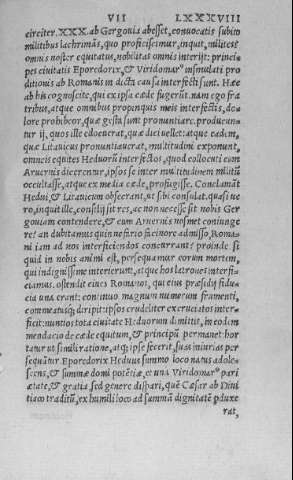 VII LXXXVIII
circiter. XXX. ab Gergouia abesset, conuocatis subito
militibus lachrimãs, quo proficiscimur, inquit, milites?
omnis noster equitatus, nobilitas omnis interijt: princi-
pes ciuitatis Eporedorix, & Viridomarꝰ insimulati pro
ditionis ab Romanis in dicta causa interfecti sunt. Hæc
ab his cognoscite, qui ex ipsa cæde fugerũt. nam ego fra
tribus, atque omnibus propinquis meis interfectis, do-
lore prohibeor, quæ gesta sunt pronuntiare. producun-
tur ij, quos ille edocuerat, quæ dici uellet: atque eadem,
quæ Litauicus pronuntiauerat, multitudini exponunt,
omneis equites Heduorũ interfectos, quod collocuti cum
Aruernis dicerentur, ipsos se inter multitudinem militũ
occultasse, atque ex media cæde, profugisse. Conclamãt
Hedui, & Litauicum obsecrant, ut sibi consulat. quasi ue
ro, inquit ille, consilij sit res, ac non necesse sit nobis Ger
gouiam contendere, & cum Aruernis nosmet coniunge
re? an dubitamus quin nefario facinore admisso, Roma-
ni iam ad nos interficiendos concurrant? proinde si
quid in nobis animi est, persequamur eorum mortem,
qui indignissime interierunt, atque hos latrones interfi-
ciamus. ostendit eiues Romanos, qui eius præsidij fidu-
cia una erant: continuo magnum numerum frumenti,
commeatusq; diripit: ipsos crudeliter excruciatos inter-
ficit: nuntios tota ciuitate Heduorum dimittit, in eodem
mendacio de cæde equitum, & principũ permanet: hor
tatur ut simili ratione, atq; ipse fecerit, suas iniurias per
sequãtur. Eporedorix Heduus summo loco natus adole-
scens, & summæ domi potẽtiæ, et una Viridomarꝰ pari
ætate, & gratia sed genere dispari, quẽ Cæsar ab Diui
tiaco traditũ, ex humili loco ad summã dignitatẽ pduxe
rat,